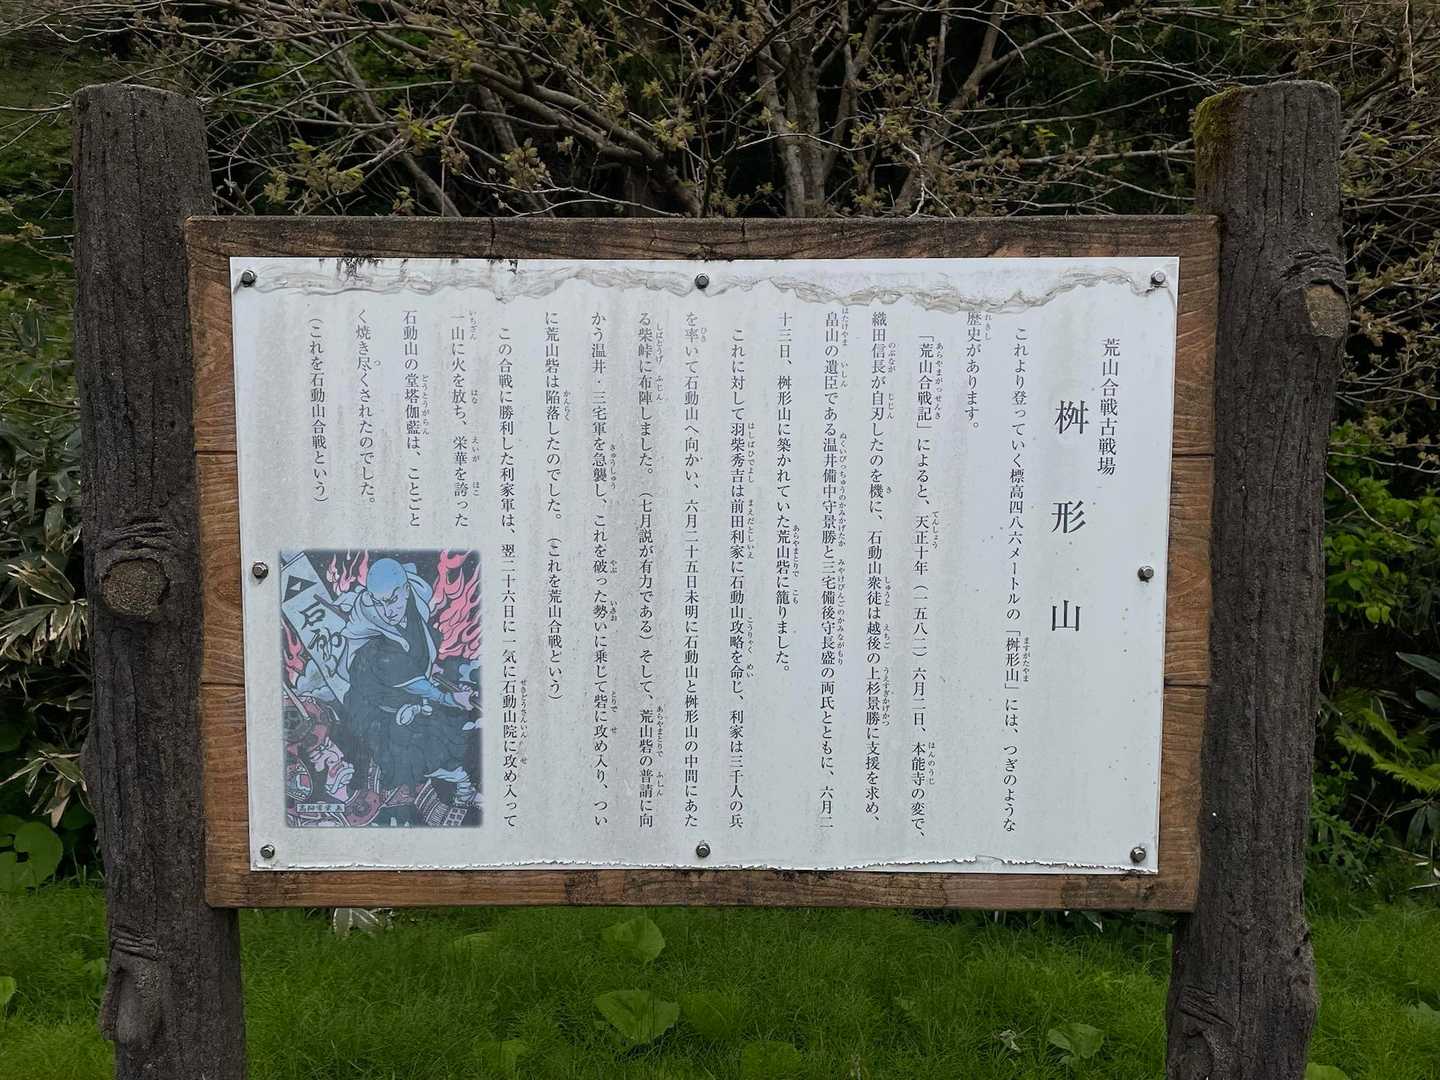 荒山合戦古戦場
桝形山
これより登っていく標高四八六メートルの「桝形山」には、つぎのような
歴史があります。
「荒山合戦記」によると、天正十年（一五八二）六月二日、本能寺の変で、
織田信長が自刃したのを機に、石動山衆徒は越後の上杉景勝に支援を求め、
畠山の遺臣である温井備中守景勝と三宅備後守長盛の両氏とともに、六月二
十三日、桝形山に築かれていた荒山砦に籠りました。
これに対して羽柴秀吉は前田利家に石動山攻略を命じ、利家は三千人の兵
を率いて石動山へ向かい、六月二十五日未明に石動山と桝形山の中間にあた
る柴峠に布陣しました。（七月説が有力である）そして、荒山砦の普請に向
かう温井・三宅軍を急襲し、これを破った勢いに乗じて砦に攻め入り、つい
に荒山砦は陥落したのでした。（これを荒山合戦という）
この合戦に勝利した利家軍は、翌二十六日に一気に石動山院に攻め入って
一山に火を放ち、栄華を誇った
石動山の堂塔伽藍は、ことごと
く焼き尽くされたのでした。
（これを石動山合戦という）
石動山